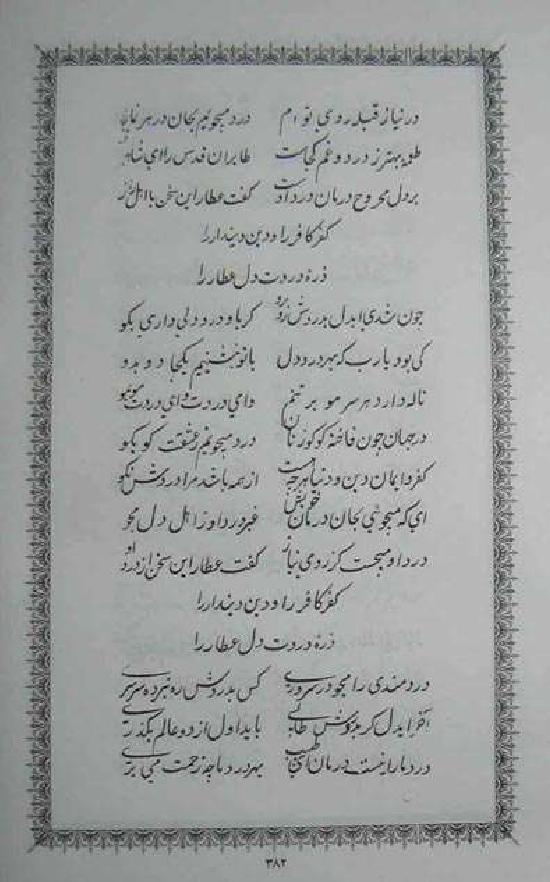 در نیاز قبله روی تو ام درد میجویم بجان در هر نماز
طور بهتر ز درد و غم کجاست طایران قدس را ای شاهباز
بر دل مجروح درمان درد اوست گفت عطار این سخن با اهل راز
کفر کافر را و دین دیندار را
ذرهٔ دردت دل عطار را
چون شدی ایدل بدردش روبرو گر باو درد دلی داری بگو
کی بود یارب که بهر درد دل با تو بنشینیم یکجا دو بدو
ناله دارد هر سر مو بر تنم وای دردت وای دردت کو بکو
در جهان چون فاخته کوکو زنان درد میجویم عشقت کو بکو
کفر و ایمان دین و دنیا هر چه هست از همه باشد مرا دردش نکو
ای که میجوئی بجان درمان خویش غیر درد او ز اهل دل مجو
درد او میجست کز روی نیاز گفت عطار این سخن از درد او
کفر کافر را و دین دیندار را
ذرهٔ دردت دل عطار را
دردمندی را مجو در سروری کس بدردش ره نبرده سرسری
ایدل گر دردش طالبی باید اول از دو عالم بگذری
درد ما را نیست درمان ای طبیب بهر درد ما چه زحمت می بری
۳۸۲